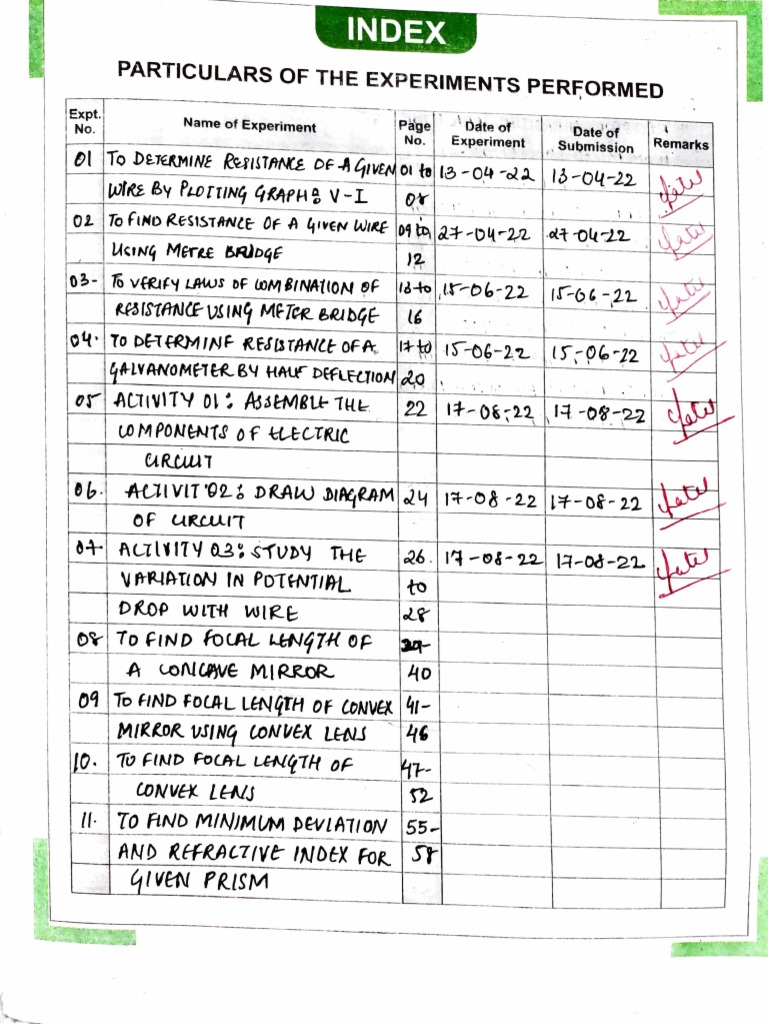 INDEX
PARTICULARS OF THE EXPERIMENTS PERFORMED
Expt. No. Name of Experiment Page No. Date of Experiment Date of Submission Remarks
01 TO DETERMINE RESISTANCE OF A GIVEN 01 to 13-04-22 13-04-22
WIRE BY PLOTTING GRAPH: V-I 08
02 TO FIND RESISTANCE OF A GIVEN WIRE 09 to 27-04-22 27-04-22
USING METRE BRIDGE 12
03- TO VERIFY LAWS OF COMBINATION OF 13 to 15-06-22 15-06-22
RESISTANCE USING METER BRIDGE 16
04. TO DETERMINE RESISTANCE OF A 17 to 15-06-22 15-06-22
GALVANOMETER BY HALF DEFLECTION 20
05 ACTIVITY 01: ASSEMBLE THE 22 17-08-22 17-08-22
COMPONENTS OF ELECTRIC
CIRCUIT
06. ACTIVIT 02: DRAW DIAGRAM 24 17-08-22 17-08-22
OF CIRCUIT
07. ACTIVITY 03: STUDY THE 26 17-08-22 17-08-22
VARIATION IN POTENTIAL to
DROP WITH WIRE 28
08 TO FIND FOCAL LENGTH OF
A CONCAVE MIRROR 40
09 TO FIND FOCAL LENGTH OF CONVEX 41-
MIRROR USING CONVEX LENS 46
10. TO FIND FOCAL LENGTH OF 47-
CONVEX LENS 52
11. TO FIND MINIMUM DEVIATION 55-
AND REFRACTIVE INDEX FOR 58
GIVEN PRISM